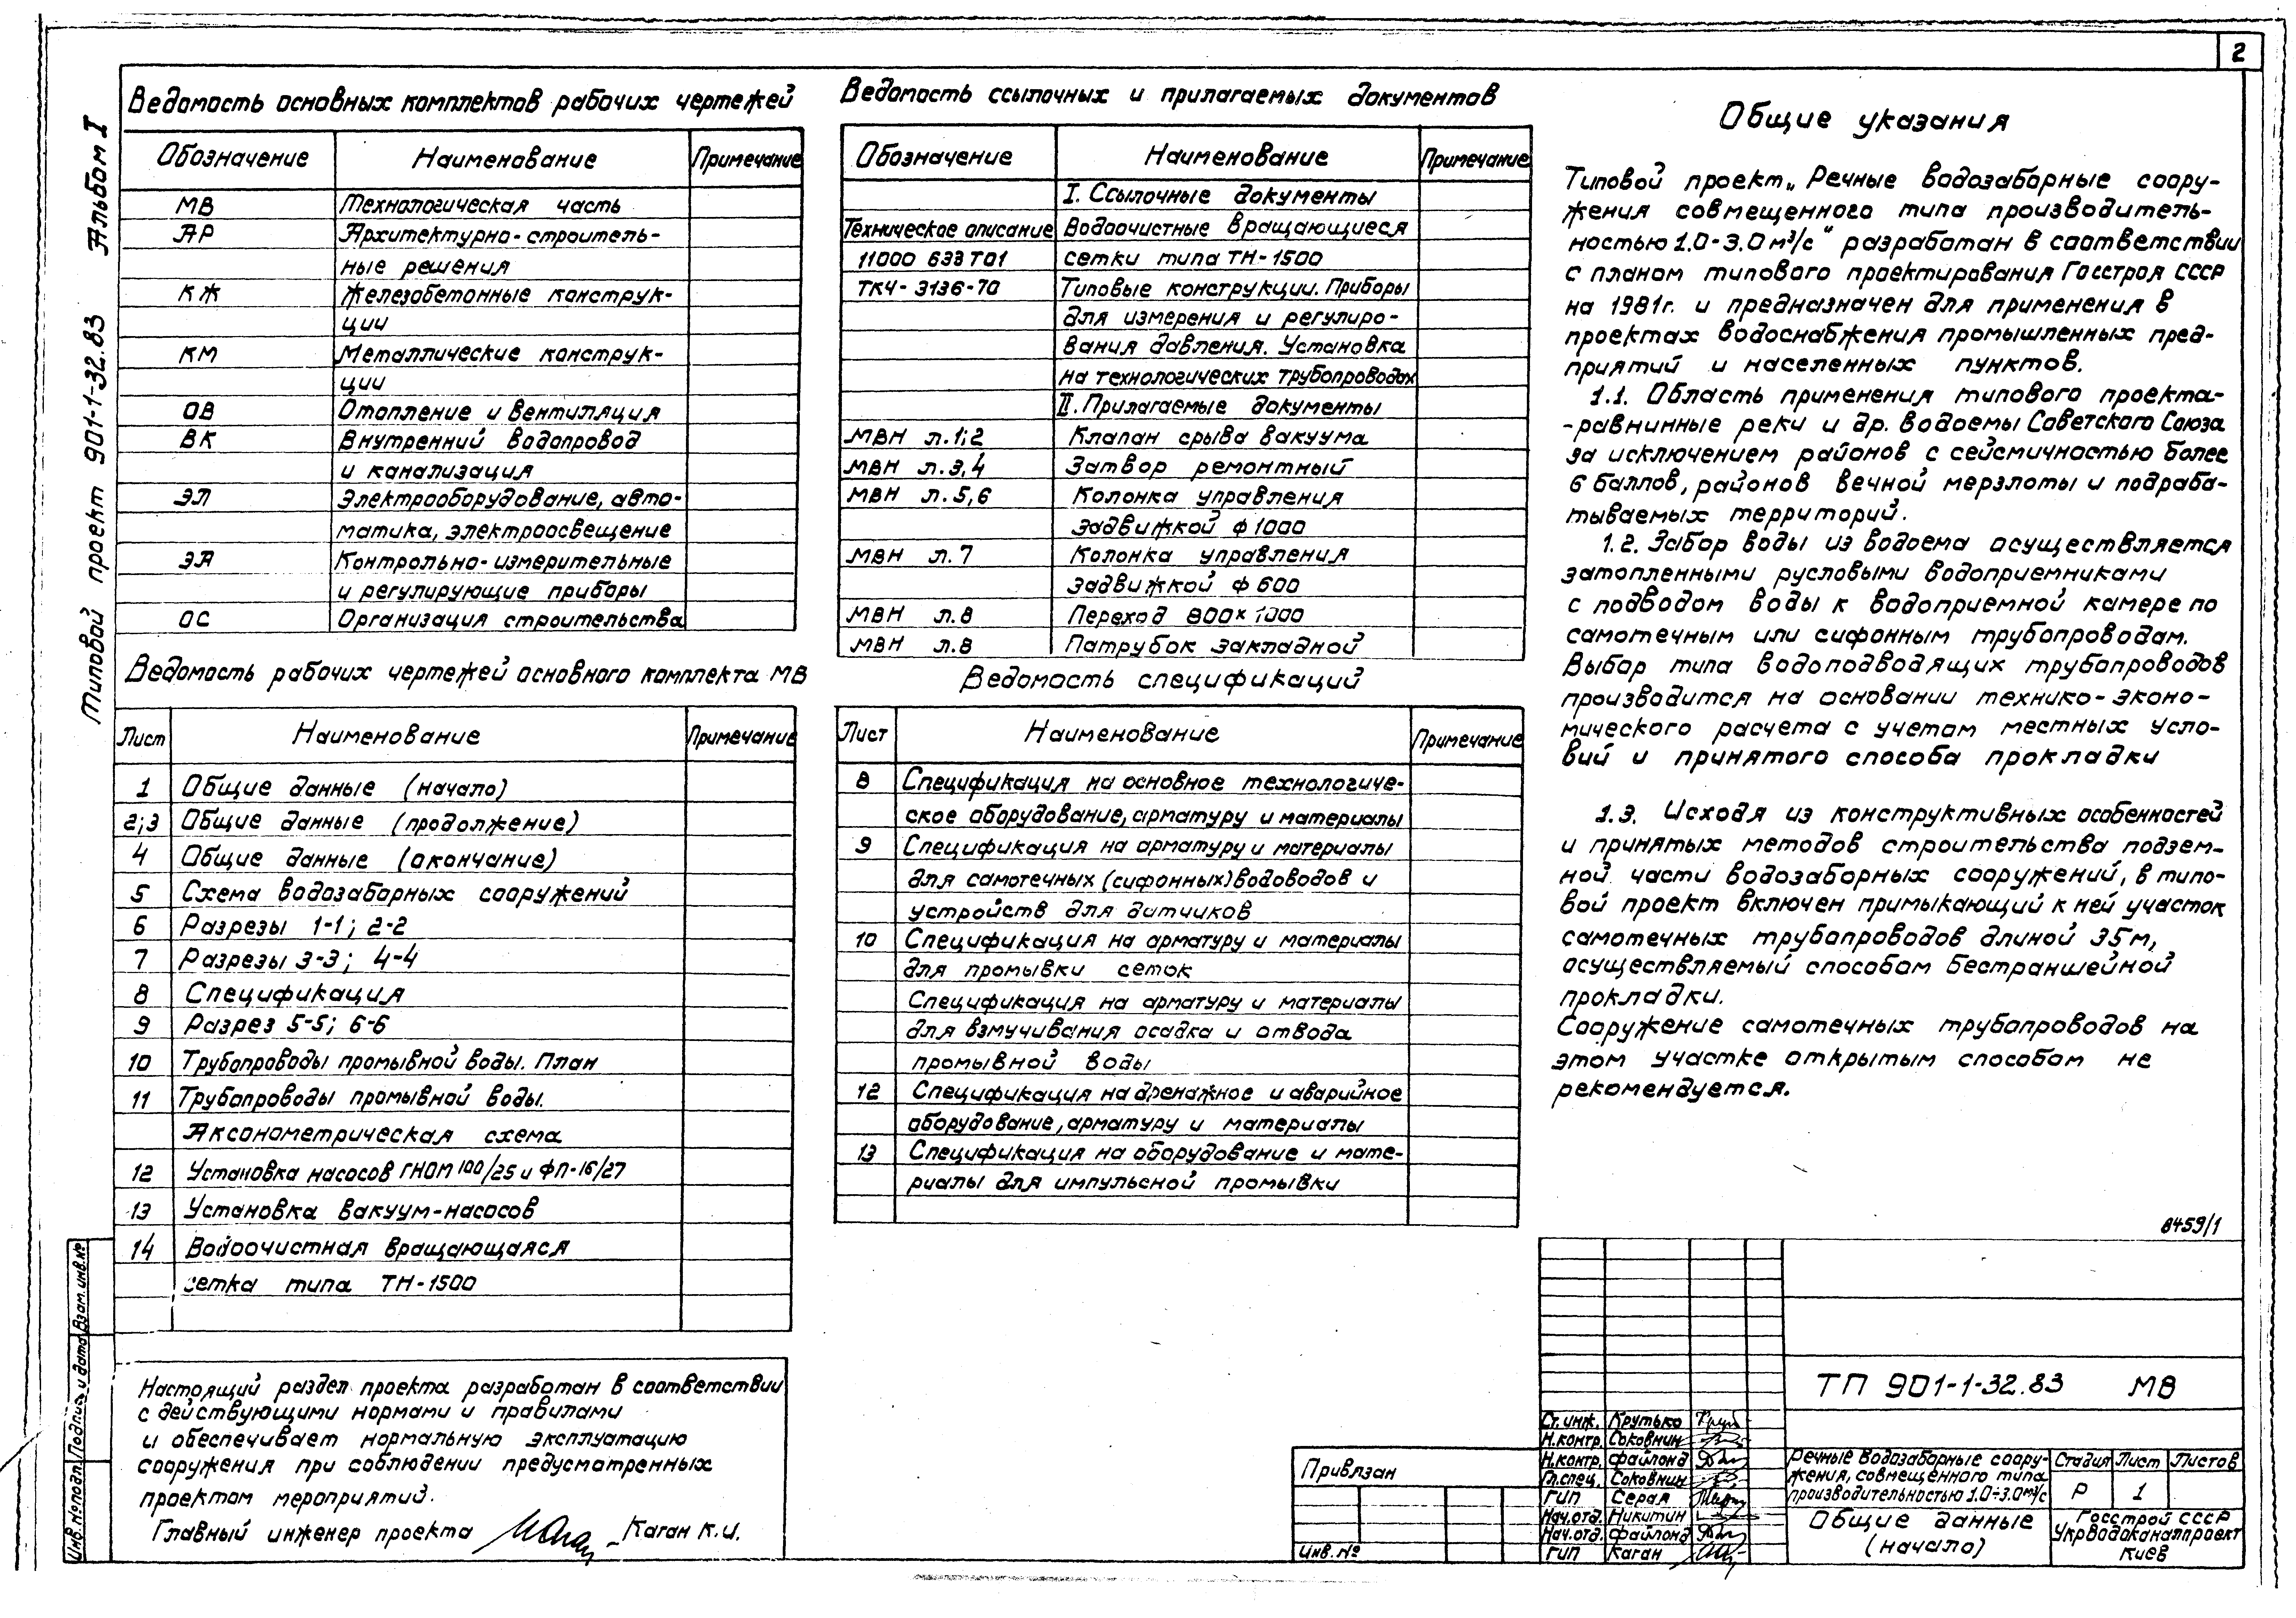 2
Альбом I
Типовой проект 901-1-32.83
Ведомость основных комплектов рабочих чертежей
Обозначение Наименование Примечание
МВ Технологическая часть
АР Архитектурно-строитель-
ные решения
КЖ Железобетонные конструк-
ции
КМ Металлические конструк-
ции
ОВ Отопление и вентиляция
ВК Внутренний водопровод
и канализация
ЭЛ Электрооборудование, авто-
матика, электроосвещение
ЭА Контрольно-измерительные
и регулирующие приборы
ОС Организация строительства
Ведомость рабочих чертежей основного комплекта МВ
Лист Наименование Примечание
1 Общие данные (начало)
2;3 Общие данные (продолжение)
4 Общие данные (окончание)
5 Схема водозаборных сооружений
6 Разрезы 1-1; 2-2
7 Разрезы 3-3; 4-4
8 Спецификация
9 Разрез 5-5; 6-6
10 Трубопроводы промывной воды. План
11 Трубопроводы промывной воды.
Аксонометрическая схема
12 Установка насосов ГНОМ 100/25 и ФП-16/27
13 Установка вакуум-насосов
14 Водоочистная вращающаяся
сетка типа ТН-1500
Настоящий раздел проекта разработан в соответствии
с действующими нормами и правилами
и обеспечивает нормальную эксплуатацию
сооружения при соблюдении предусмотренных
проектом мероприятий.
Главный инженер проекта Каган К.И.
Ведомость ссылочных и прилагаемых документов
Обозначение Наименование Примечание
I. Ссылочные документы
Техническое описание Водоочистные вращающиеся
11000 633 Т01 сетки типа ТН-1500
ТК4-3136-70 Типовые конструкции. Приборы
для измерения и регулиро-
вания давления. Установка
на технологических трубопроводах
II. Прилагаемые документы
МВН л.1;2 Клапан срыва вакуума
МВН л.3,4 Затвор ремонтный
МВН л.5,6 Колонка управления
задвижкой ф 1000
МВН л.7 Колонка управления
задвижкой ф 600
МВН л.8 Переход 800×1000
МВН л.8 Патрубок закладной
Ведомость спецификаций
Лист Наименование Примечание
8 Спецификация на основное технологиче-
ское оборудование, арматуру и материалы
9 Спецификация на арматуру и материалы
для самотечных (сифонных) водоводов и
устройств для датчиков
10 Спецификация на арматуру и материалы
для промывки сеток
Спецификация на арматуру и материалы
для взмучивания осадка и отвода
промывной воды
12 Спецификация на дренажное и аварийное
оборудование, арматуру и материалы
13 Спецификация на оборудование и мате-
риалы для импульсной промывки
Общие указания
Типовой проект „Речные водозаборные соору-
жения совмещенного типа производитель-
ностью 1.0-3.0 м³/с" разработан в соответствии
с планом типового проектирования Госстроя СССР
на 1981г. и предназначен для применения в
проектах водоснабжения промышленных пред-
приятий и населенных пунктов.
1.1. Область применения типового проекта-
-равнинные реки и др. водоемы Советского Союза
за исключением районов с сейсмичностью более
6 баллов, районов вечной мерзлоты и подраба-
тываемых территорий.
1.2. Забор воды из водоема осуществляется
затопленными русловыми водоприемниками
с подводом воды к водоприемной камере по
самотечным или сифонным трубопроводам.
Выбор типа водоподводящих трубопроводов
производится на основании технико-эконо-
мического расчета с учетом местных усло-
вий и принятого способа прокладки
1.3. Исходя из конструктивных особенностей
и принятых методов строительства подзем-
ной части водозаборных сооружений, в типо-
вой проект включен примыкающий к ней участок
самотечных трубопроводов длиной 35м,
осуществляемый способом бестраншейной
прокладки.
Сооружение самотечных трубопроводов на
этом участке открытым способом не
рекомендуется.
8459/1
ТП 901-1-32.83 МВ
Ст. инж. Крутько
Н.контр. Соковнин
Н.контр. Файлонд
Гл.спец. Соковнин
ГИП Серая
Нач.отд. Никитин
Нач.отд. Файлонд
ГИП Каган
Речные водозаборные соору-
жения, совмещенного типа
производительностью 1.0÷3.0м³/с
Стадия Лист Листов
Р 1
Общие данные
(начало)
Госстрой СССР
Укрводоканалпроект
Киев
Привязан
Инв. №
Инв.№подл. Подпись и дата Взам.инв.№